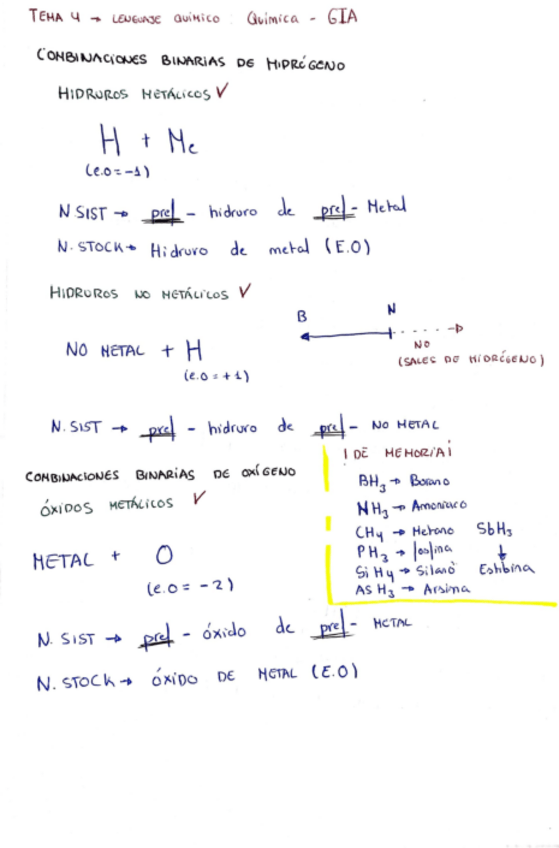 TEMA 4 → LENGUAJE QUÍMICO : QUÍMICA - GIA
COMBINACIONES BINARIAS DE HIDRÓGENO
HIDRUROS METÁLICOS √
H + Me
(e.o = -1)
N SIST → pref - hidruro de pref - Metal
N. STOCK → Hidruro de metal (E.O)
HIDRUROS NO METÁLICOS √
B N
NO
(SALES DE HIDRÓGENO)
NO METAL + H
(e.o = +1)
N. SIST → pref - hidruro de pref - NO METAL
¡DE MEMORIA!
BH₃ → Borano
NH₃ → Amoniaco
CH₄ → Metano SbH₃
PH₃ → fosfina ↓
SiH₄ → Silano Estibina
AsH₃ → Arsina
COMBINACIONES BINARIAS DE OXÍGENO
ÓXIDOS METÁLICOS √
METAL + O
(e.o = -2)
N. SIST → pref - óxido de pref - METAL
N. STOCK → ÓXIDO DE METAL (E.O)